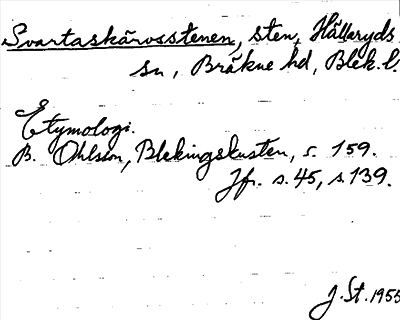 Svartaskärvsstenen, sten, Hällaryds
sn, Bräkne hd, Blek. l.
Etymologi.
B. Ohlsson, Blekingskusten, s. 159.
Jfr. s. 45, s. 139.
J. St. 1955